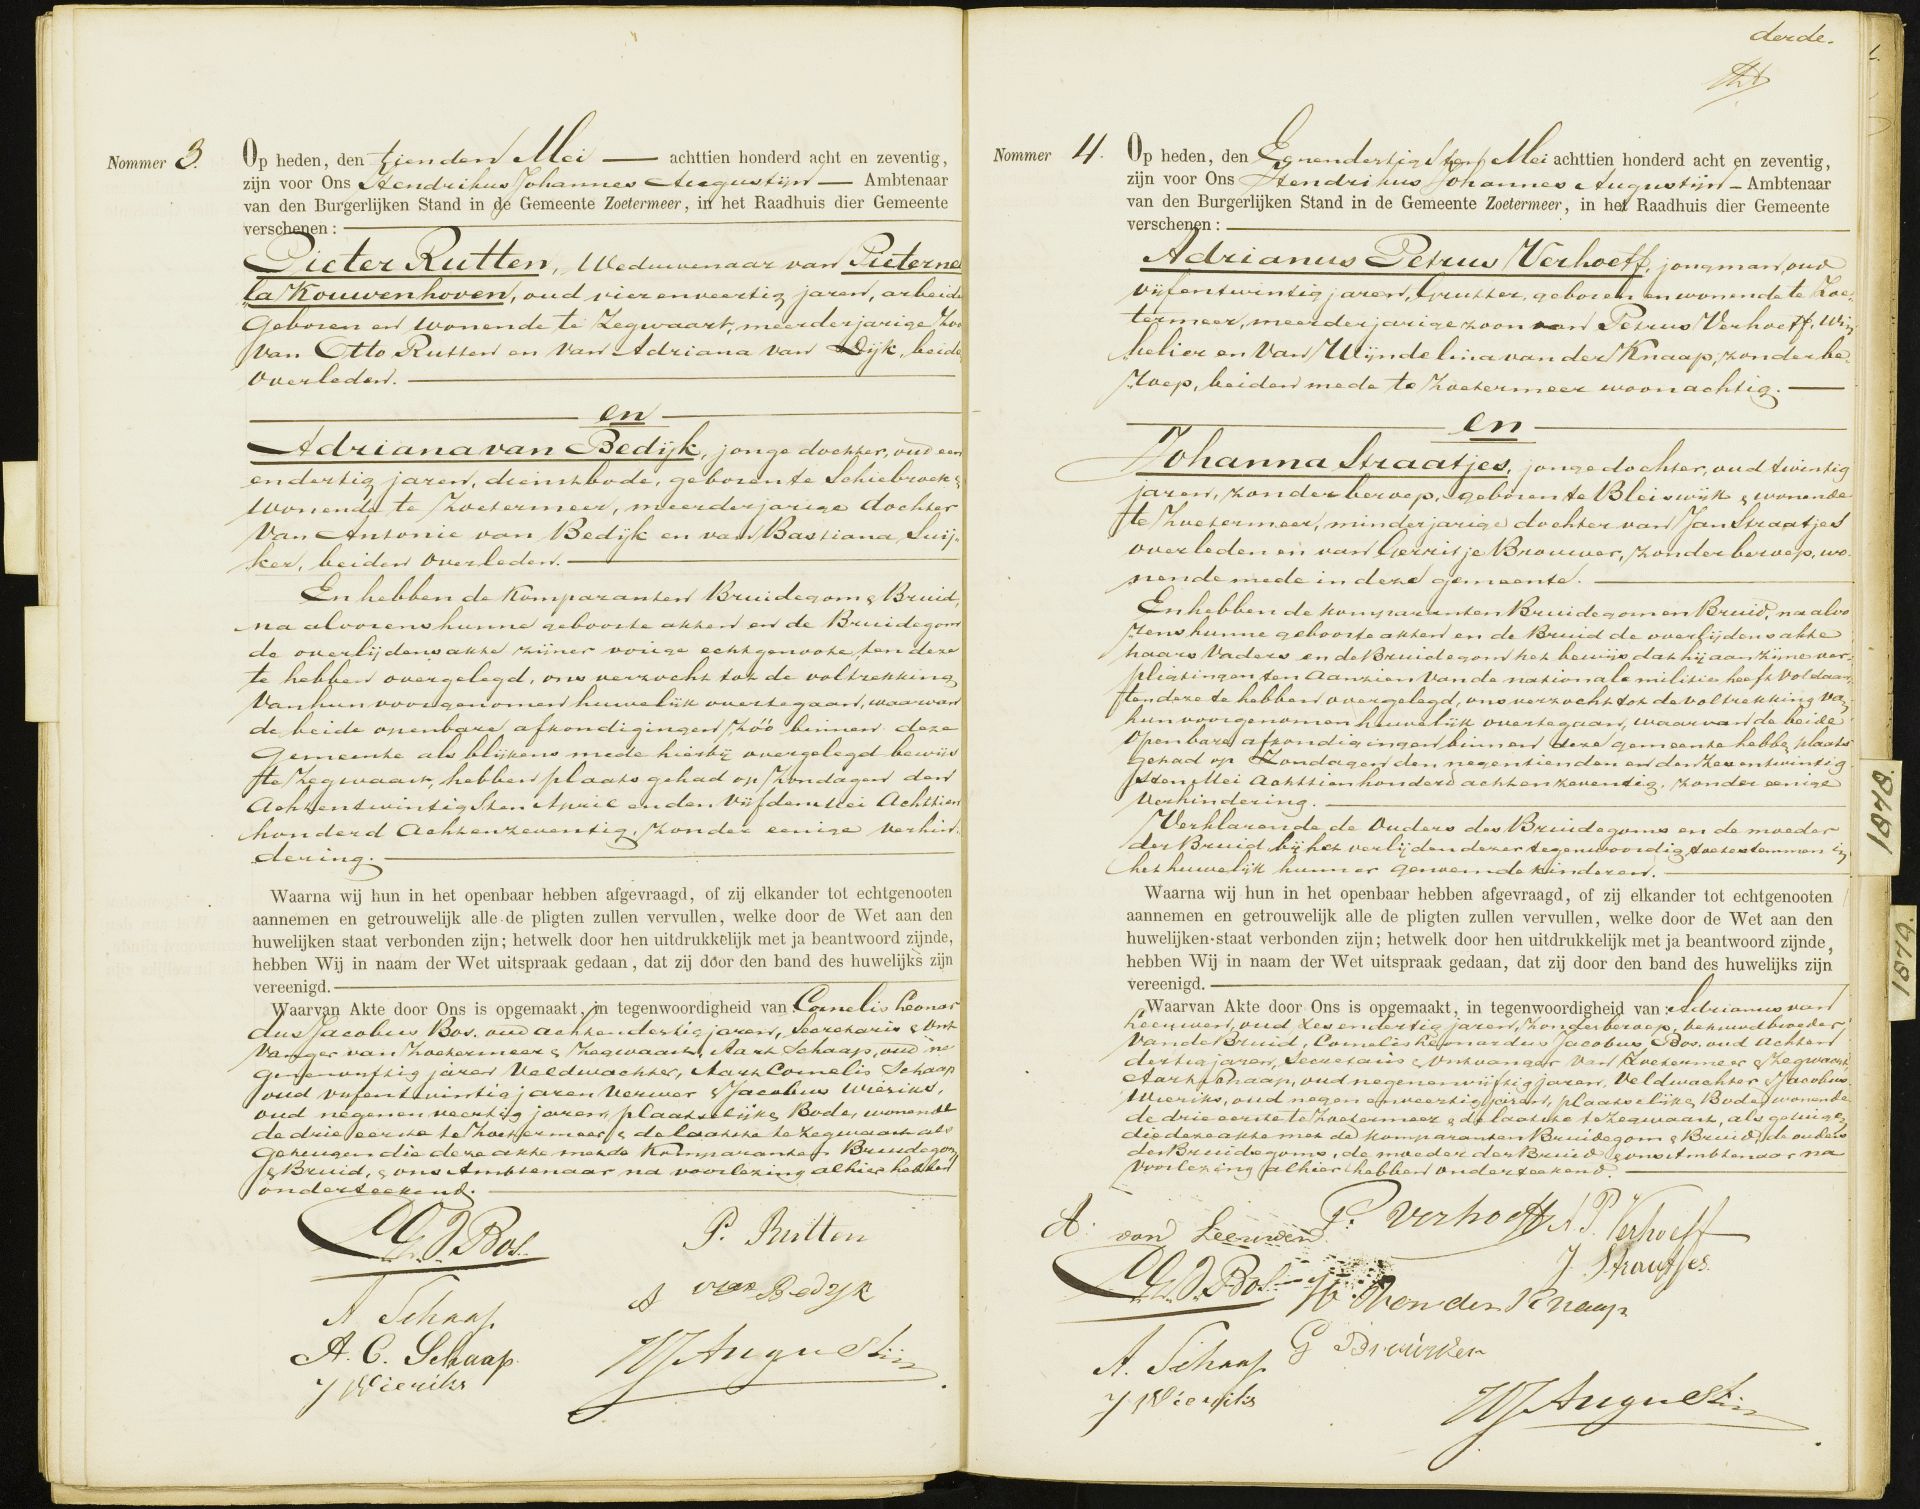 Nommer 3.
Op heden, den tienden Mei — achttien honderd acht en zeventig,
zijn voor Ons Hendrikus Johannes Augustijn — Ambtenaar
van den Burgerlijken Stand in de Gemeente Zoetermeer, in het Raadhuis dier Gemeente
verschenen:
Pieter Rutten, Weduwenaar van Pieternel
la Kouwenhoven, oud vierenveertig jaren, arbeide
Geboren en wonende te Zegwaart, meerderjarige Zoo
van Otto Rutten en van Adriana van Dijk, beide
overleden.
en
Adriana van Bedijk, jonge dochter, oud een
endertig jaren, dienstbode, geboren te Schiebroek &
wonende te Zoetermeer, meerderjarige dochter
van Antonie van Bedijk en van Bastiana Suij-
ker, beiden overleden.
En hebben de Komparanten Bruidegom & Bruid,
na alvorens hunne geboorte akten en de Bruidegom
de overlijdensakte zijner vorige echtgenoote, ten deze
te hebben overgelegd, ons verzocht tot de voltrekking
van hun voorgenomen huwelijk overtegaan, waarvan
de beide openbare afkondigingen zóó binnen deze
gemeente als blijkens mede hierbij overgelegd bewijs
te Zegwaart, hebben plaats gehad op Zondagen den
Achtentwintigsten April en den vijfden Mei Achttien
honderd Achtenzeventig, zonder eenige verhin-
dering.
Waarna wij hun in het openbaar hebben afgevraagd, of zij elkander tot echtgenooten
aannemen en getrouwelijk alle de pligten zullen vervullen, welke door de Wet aan den
huwelijken staat verbonden zijn; hetwelk door hen uitdrukkelijk met ja beantwoord zijnde,
hebben Wij in naam der Wet uitspraak gedaan, dat zij door den band des huwelijks zijn
vereenigd.
Waarvan Akte door Ons is opgemaakt, in tegenwoordigheid van Cornelis Leonar
dus Jacobus Bos, oud achtendertig jaren, Secretaris & Ont
vanger van Zoetermeer & Zegwaart, Aart Schaap, oud ne
genenvijftig jaren Veldwachter, Aart Cornelis Schaap
oud vijfentwintig jaren Verwer & Jacobus Wieriks,
oud negenenveertig jaren, plaatselijke Bode, wonende
de drie eerste te Zoetermeer & de laatste te Zegwaart als
getuigen die deze akte met de Komparanten Bruidegom
& Bruid, & ons Ambtenaar na voorlezing alhier hebben
onderteekend.
CLJ Bos.
P. Rutten
A van Bedijk
A Schaap
A. C. Schaap.
J Wieriks
HJ Augustijn
derde.
Nommer 4.
Op heden, den Eenendertigsten Mei achttien honderd acht en zeventig,
zijn voor Ons Hendrikus Johannes Augustijn — Ambtenaar
van den Burgerlijken Stand in de Gemeente Zoetermeer, in het Raadhuis dier Gemeente
verschenen:
Adrianus Petrus Verhoeff, jongman, oud
vijfentwintig jaren, Grutter, geboren en wonende te Zoe-
termeer, meerderjarige zoon van Petrus Verhoeff, Win
kelier en van Wijndelina van der Knaap, zonder be-
roep, beiden mede te Zoetermeer woonachtig.
en
Johanna Straatjes, jongedochter, oud twintig
jaren, zonder beroep, geboren te Bleiswijk & wonende
te Zoetermeer, minderjarige dochter van Jan Straatjes
overleden en van Gerritje Brouwer, zonder beroep, wo-
nende mede in deze gemeente.
En hebben de komparanten Bruidegom en Bruid, na alvo
rens hunne geboorteakten en de Bruid de overlijdensakte
haars Vaders en de Bruidegom het bewijs dat hij aan zijne ver-
pligtingen ten aanzien van de nationale militie heeft voldaan,
ten deze te hebben overgelegd, ons verzocht tot de voltrekking van
hun voorgenomen huwelijk overtegaan, waarvan de beide
openbare afkondigingen binnen deze gemeente hebben plaats
gehad op Zondagen den negentienden en den Zesentwintig
sten Mei Achttienhonderd achtenzeventig, zonder eenige
verhindering.
Verklarende de Ouders des Bruidegoms en de moeder
der Bruid bij het verlijden dezer tegenwoordig, toetestemmen in
het huwelijk hunner genoemde kinderen.
Waarna wij hun in het openbaar hebben afgevraagd, of zij elkander tot echtgenooten
aannemen en getrouwelijk alle de pligten zullen vervullen, welke door de Wet aan den
huwelijken staat verbonden zijn; hetwelk door hen uitdrukkelijk met ja beantwoord zijnde,
hebben Wij in naam der Wet uitspraak gedaan, dat zij door den band des huwelijks zijn
vereenigd.
Waarvan Akte door Ons is opgemaakt, in tegenwoordigheid van Adrianus van
Leeuwen, oud Zesendertig jaren, Zonder beroep, behuwdbroeder
van de Bruid, Cornelis Leonardus Jacobus Bos, oud achten
dertig jaren, Secretaris & Ontvanger van Zoetermeer & Zegwaart,
Aart Schaap, oud negenenvijftig jaren, Veldwachter & Jacobus
Wieriks, oud negenenveertig jaren, plaatselijke Bode, wonende
de drie eerste te Zoetermeer & de laatste te Zegwaart, als getuigen
die deze akte met de komparanten Bruidegom & Bruid, de ouders
des Bruidegoms, de moeder der Bruid & ons Ambtenaar na
voorlezing alhier hebben onderteekend.
A. van Leeuwen
P. Verhoeff
A. P. Verhoeff
J. Straatjes.
CLJ Bos.
W. van der Knaap
A. Schaap
G Brouwer
J Wieriks
HJ Augustijn
1878.
1879.